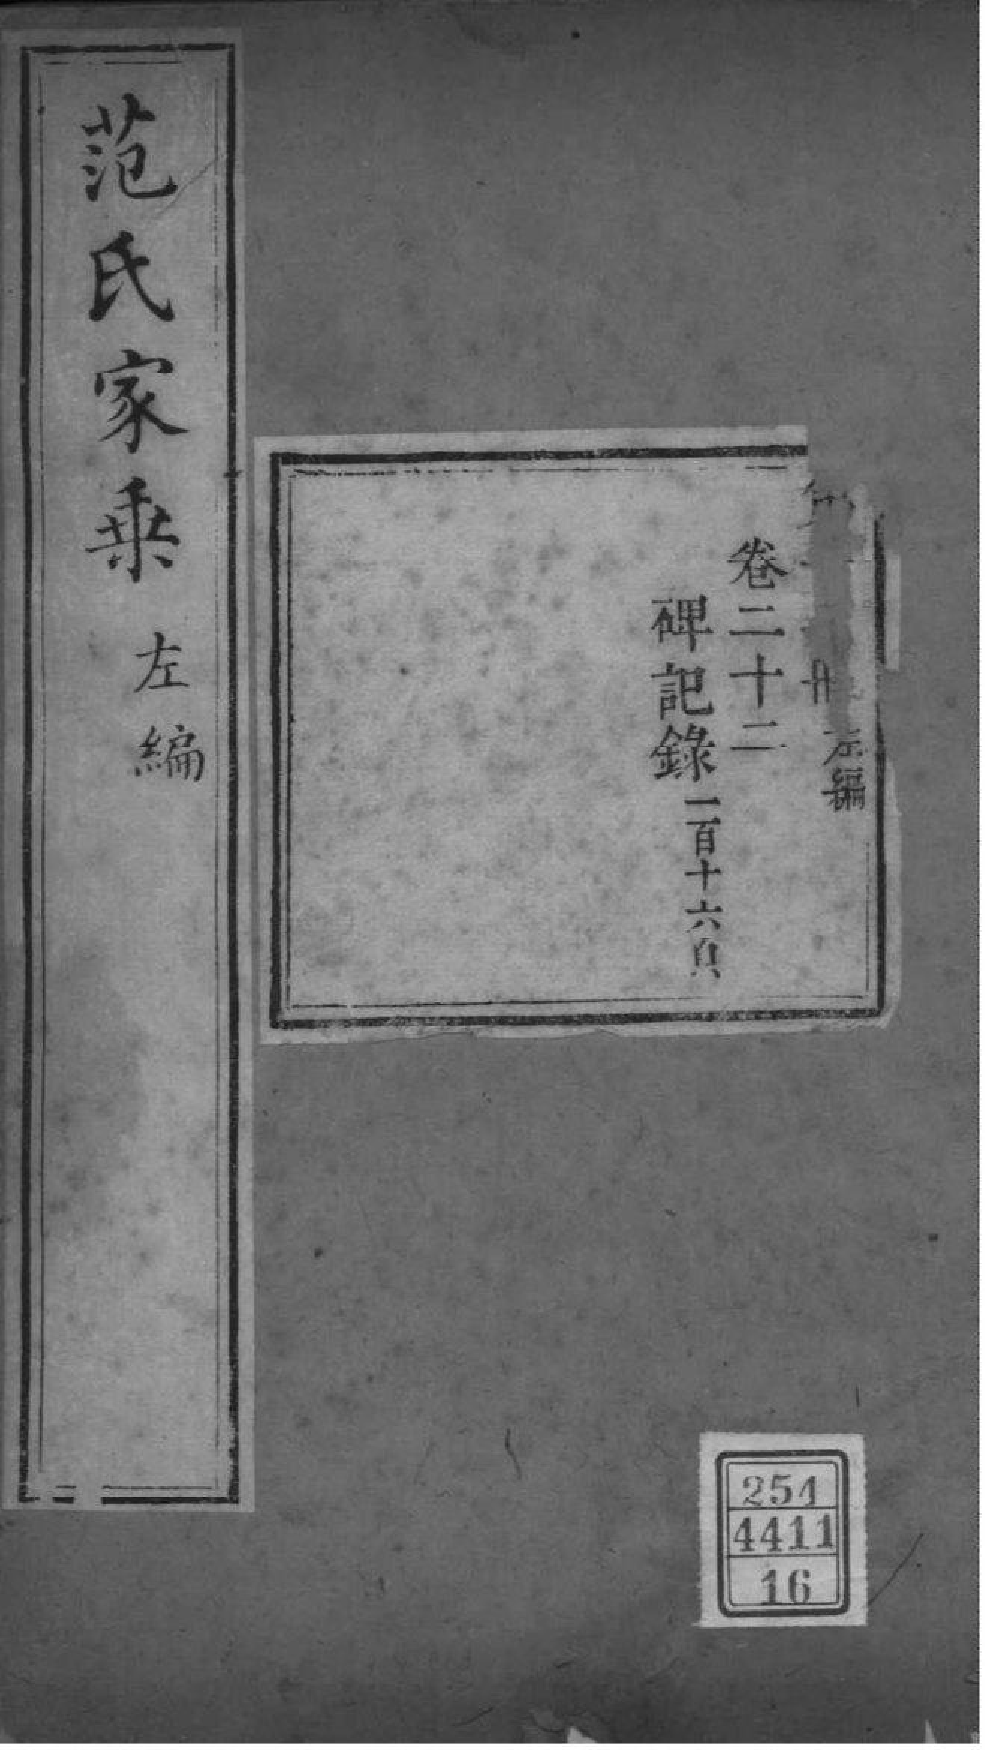 范氏家乘 左編
冊 左編
卷二十二
碑記錄 一百十六頁
254
4411
16